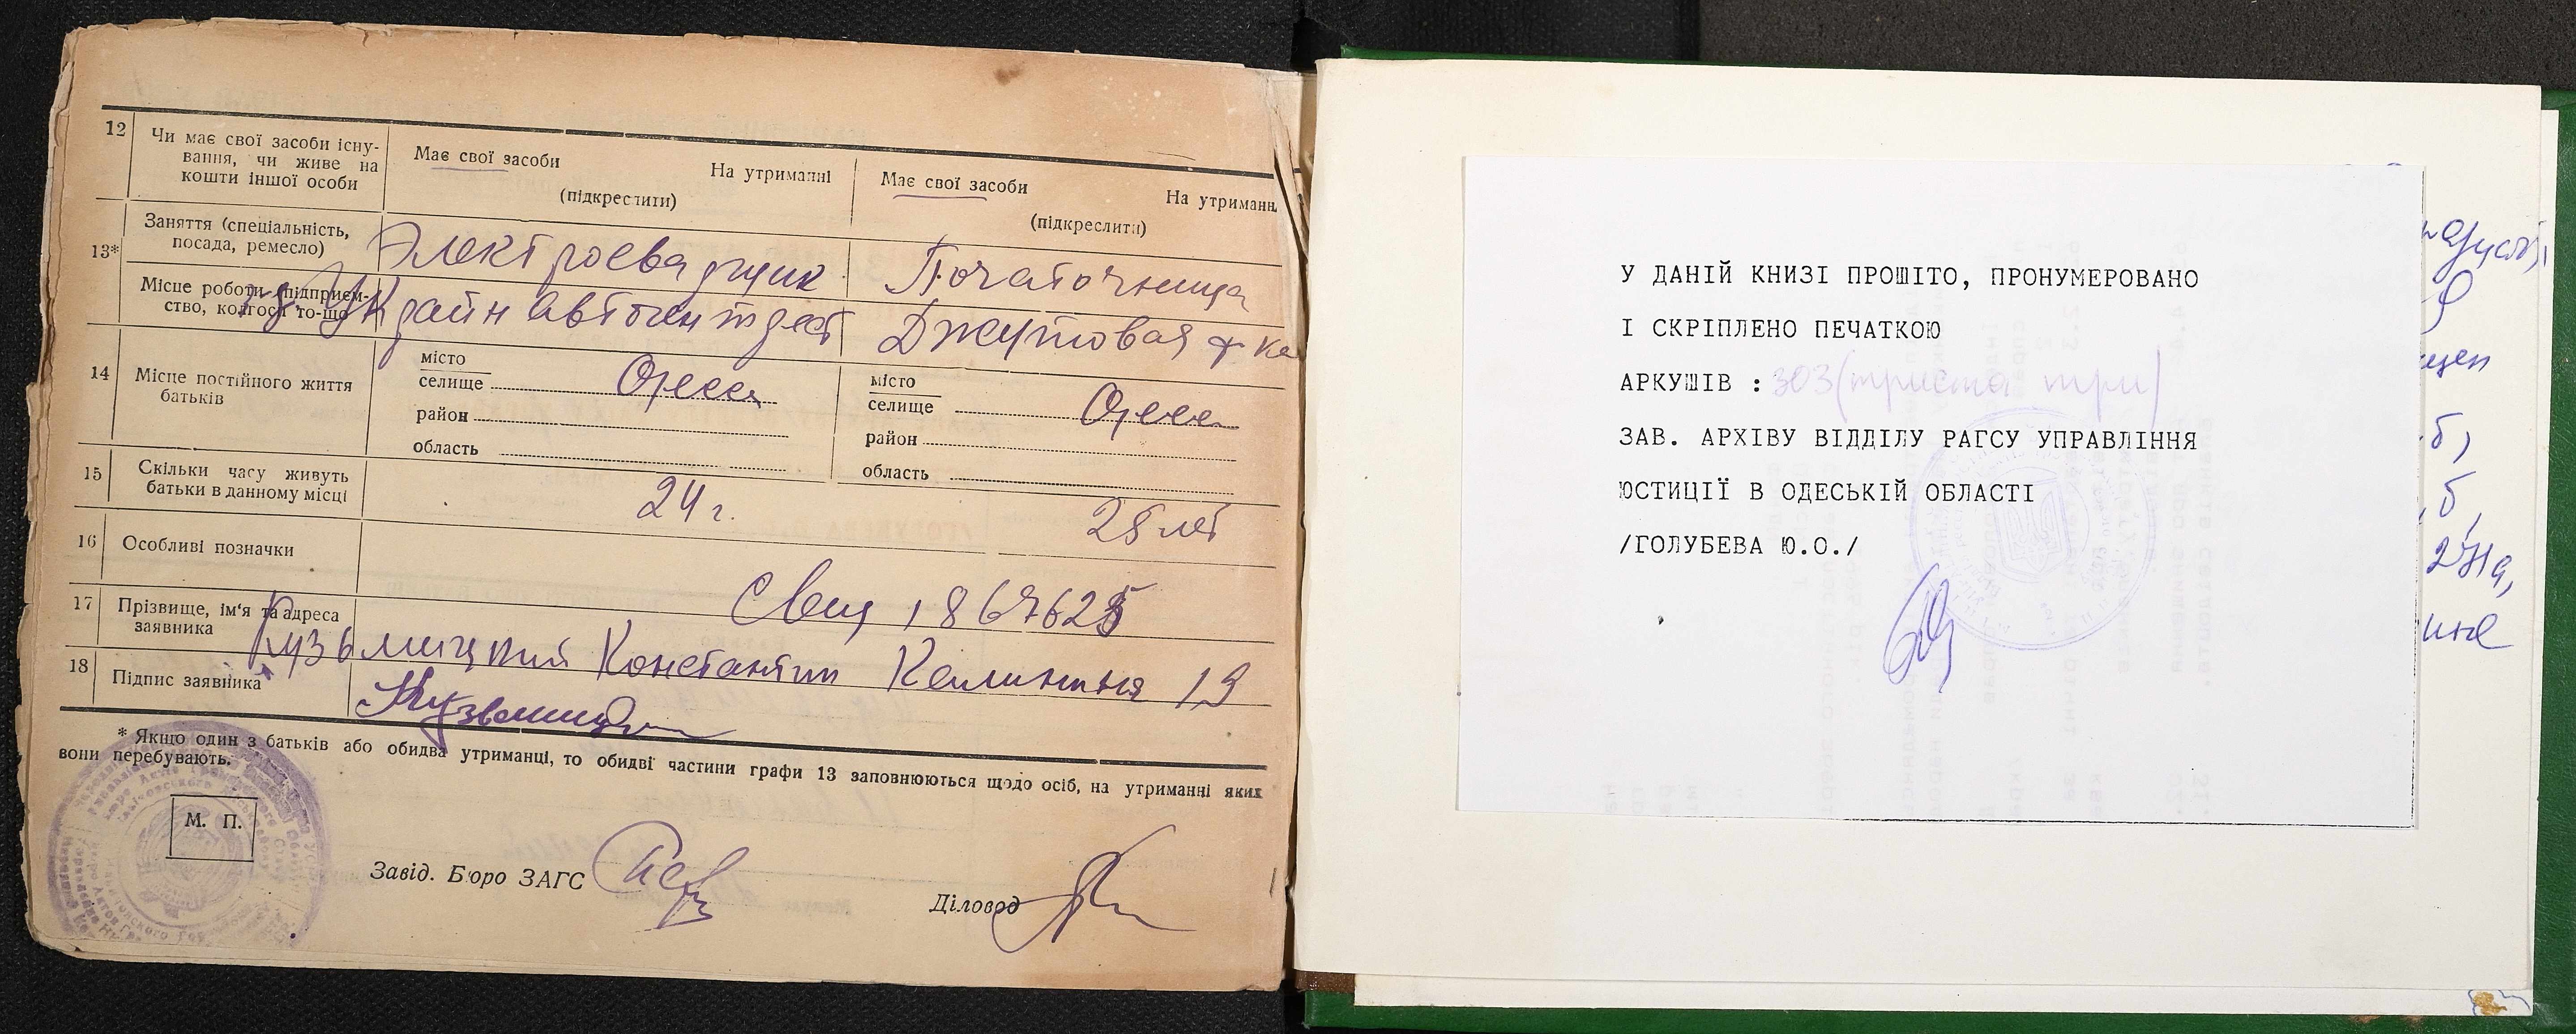 12 Чи має свої засоби існу-
вання, чи живе на
кошти іншої особи
Має свої засоби На утриманні
(підкреслити)
Має свої засоби На утриманн
(підкреслити)
13* Заняття (спеціальність,
посада, ремесло)
Электросварщик
Початочница
Місце роботи (підприєм-
ство, колгосп то-що
Джутовая ф ка
14 Місце постійного життя
батьків
місто
селище Одесса
район
область
місто
селище Одесса
район
область
15 Скільки часу живуть
батьки в данному місці
24 г.
25 лет
16 Особливі позначки
17 Прізвище, ім'я та адреса
заявника
Кузьмицкий Константин Калинина 19
18 Підпис заявника
* Якщо один з батьків або обидва утриманці, то обидві частини графи 13 заповнюються щодо осіб, на утриманні яких
вони перебувають.
М. П.
Завід. Бюро ЗАГС
Діловод
У ДАНІЙ КНИЗІ ПРОШІТО, ПРОНУМЕРОВАНО
І СКРІПЛЕНО ПЕЧАТКОЮ
АРКУШІВ : 303 (триста три)
ЗАВ. АРХІВУ ВІДДІЛУ РАГСУ УПРАВЛІННЯ
ЮСТИЦІЇ В ОДЕСЬКІЙ ОБЛАСТІ
/ГОЛУБЕВА Ю.О./